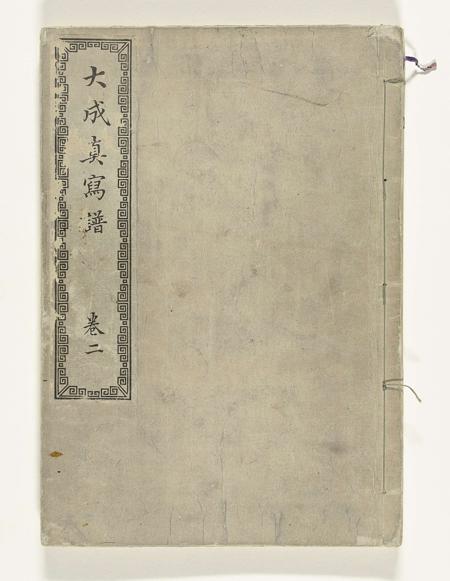 大成真寫譜 巻二